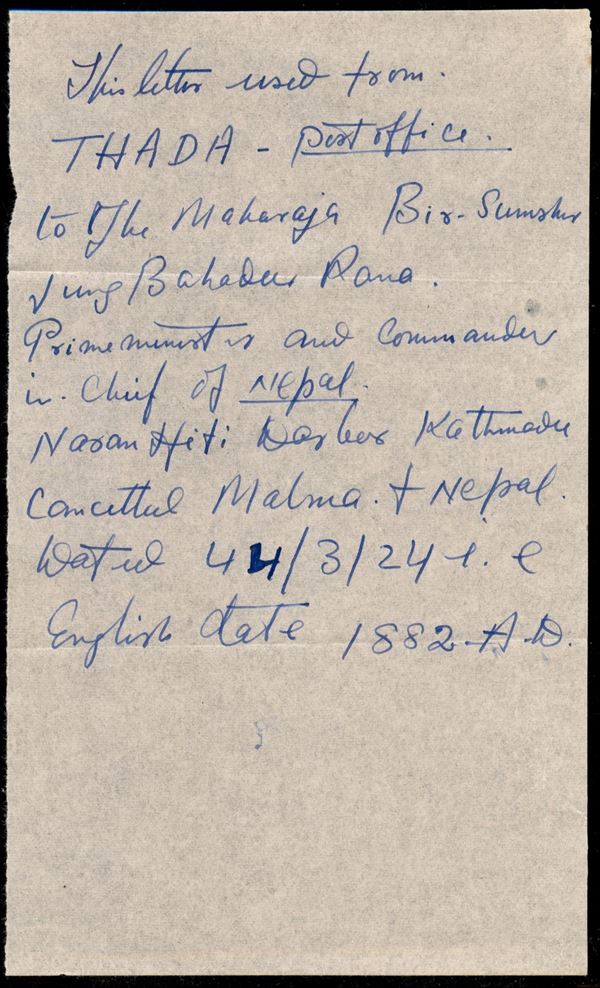 This letter used from.
THADA - Post office.
to The Maharaja Bir-Sumsher
Jung Bahadur Rana.
Prime minister and Commander
in. Chief of Nepal.
Naran Hiti Darber Kathmadu
Cancelled Malma. + Nepal.
Dated 44/3/24 i.e
English date 1882 A.D.